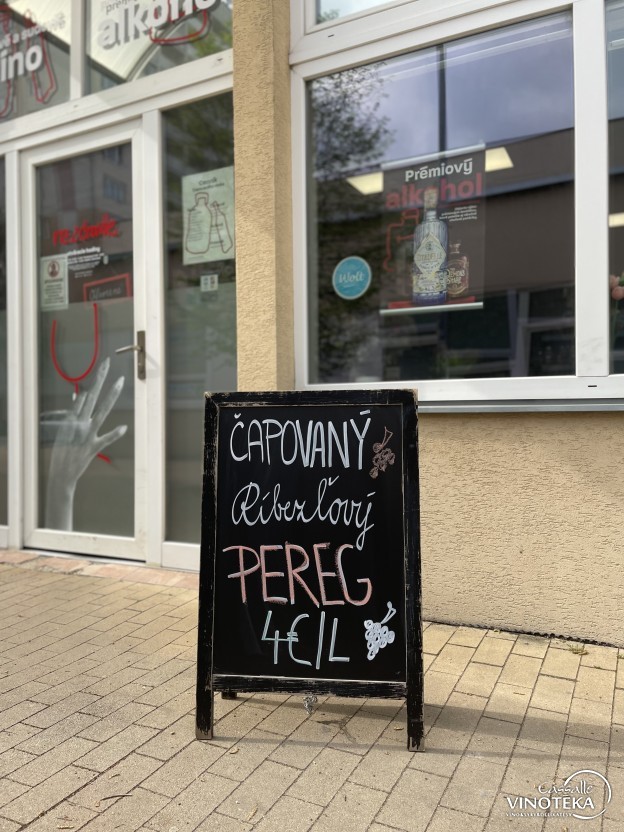 alkohol
ino
Prémiový
alkohol
Wolt
ČAPOVANÝ
Ríbezľový
PEREG
4€/L
Cassallo
VINOTEKA